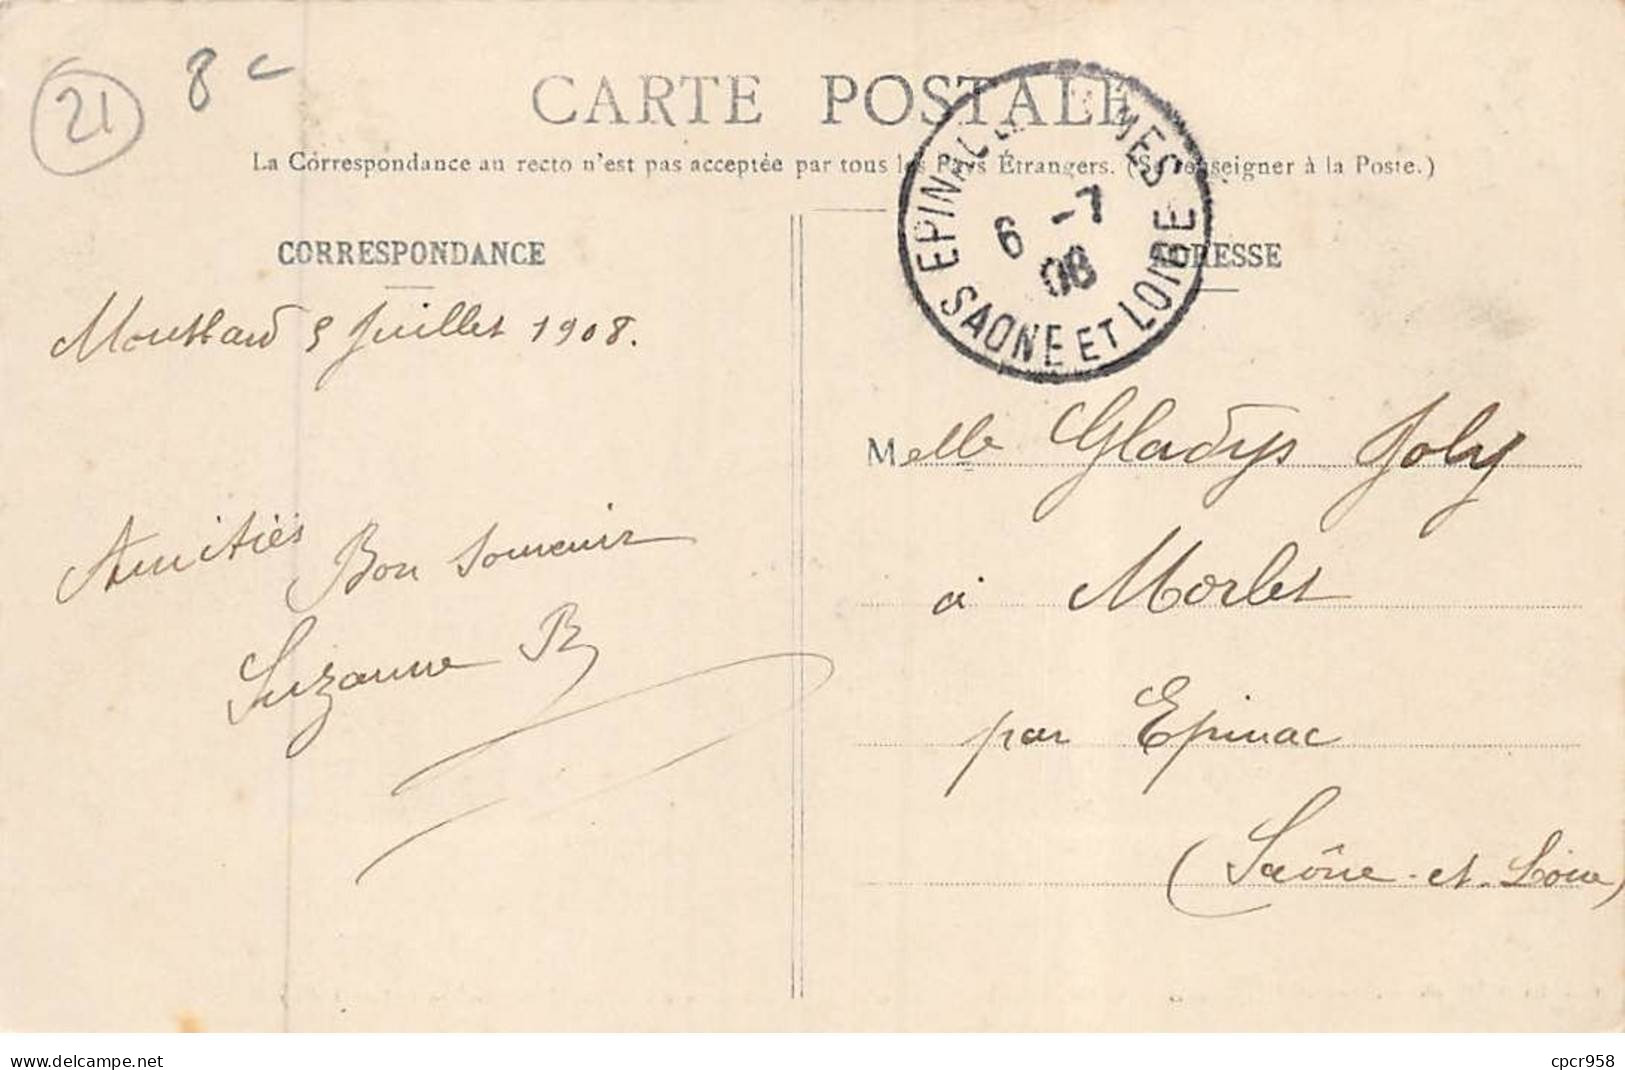 21
8 c
CARTE POSTALE
La Correspondance au recto n'est pas acceptée par tous les Pays Étrangers. (Se renseigner à la Poste.)
EPINAC LES MINES
6 -7
08
SAONE ET LOIRE
CORRESPONDANCE
ADRESSE
Montbard 5 Juillet 1908.
Amitiés
Bon souvenir
Suzanne B
Melle Gladys Joly
à Morlet
par Epinac
(Saône-et-Loire)
www.delcampe.net
cpcr958